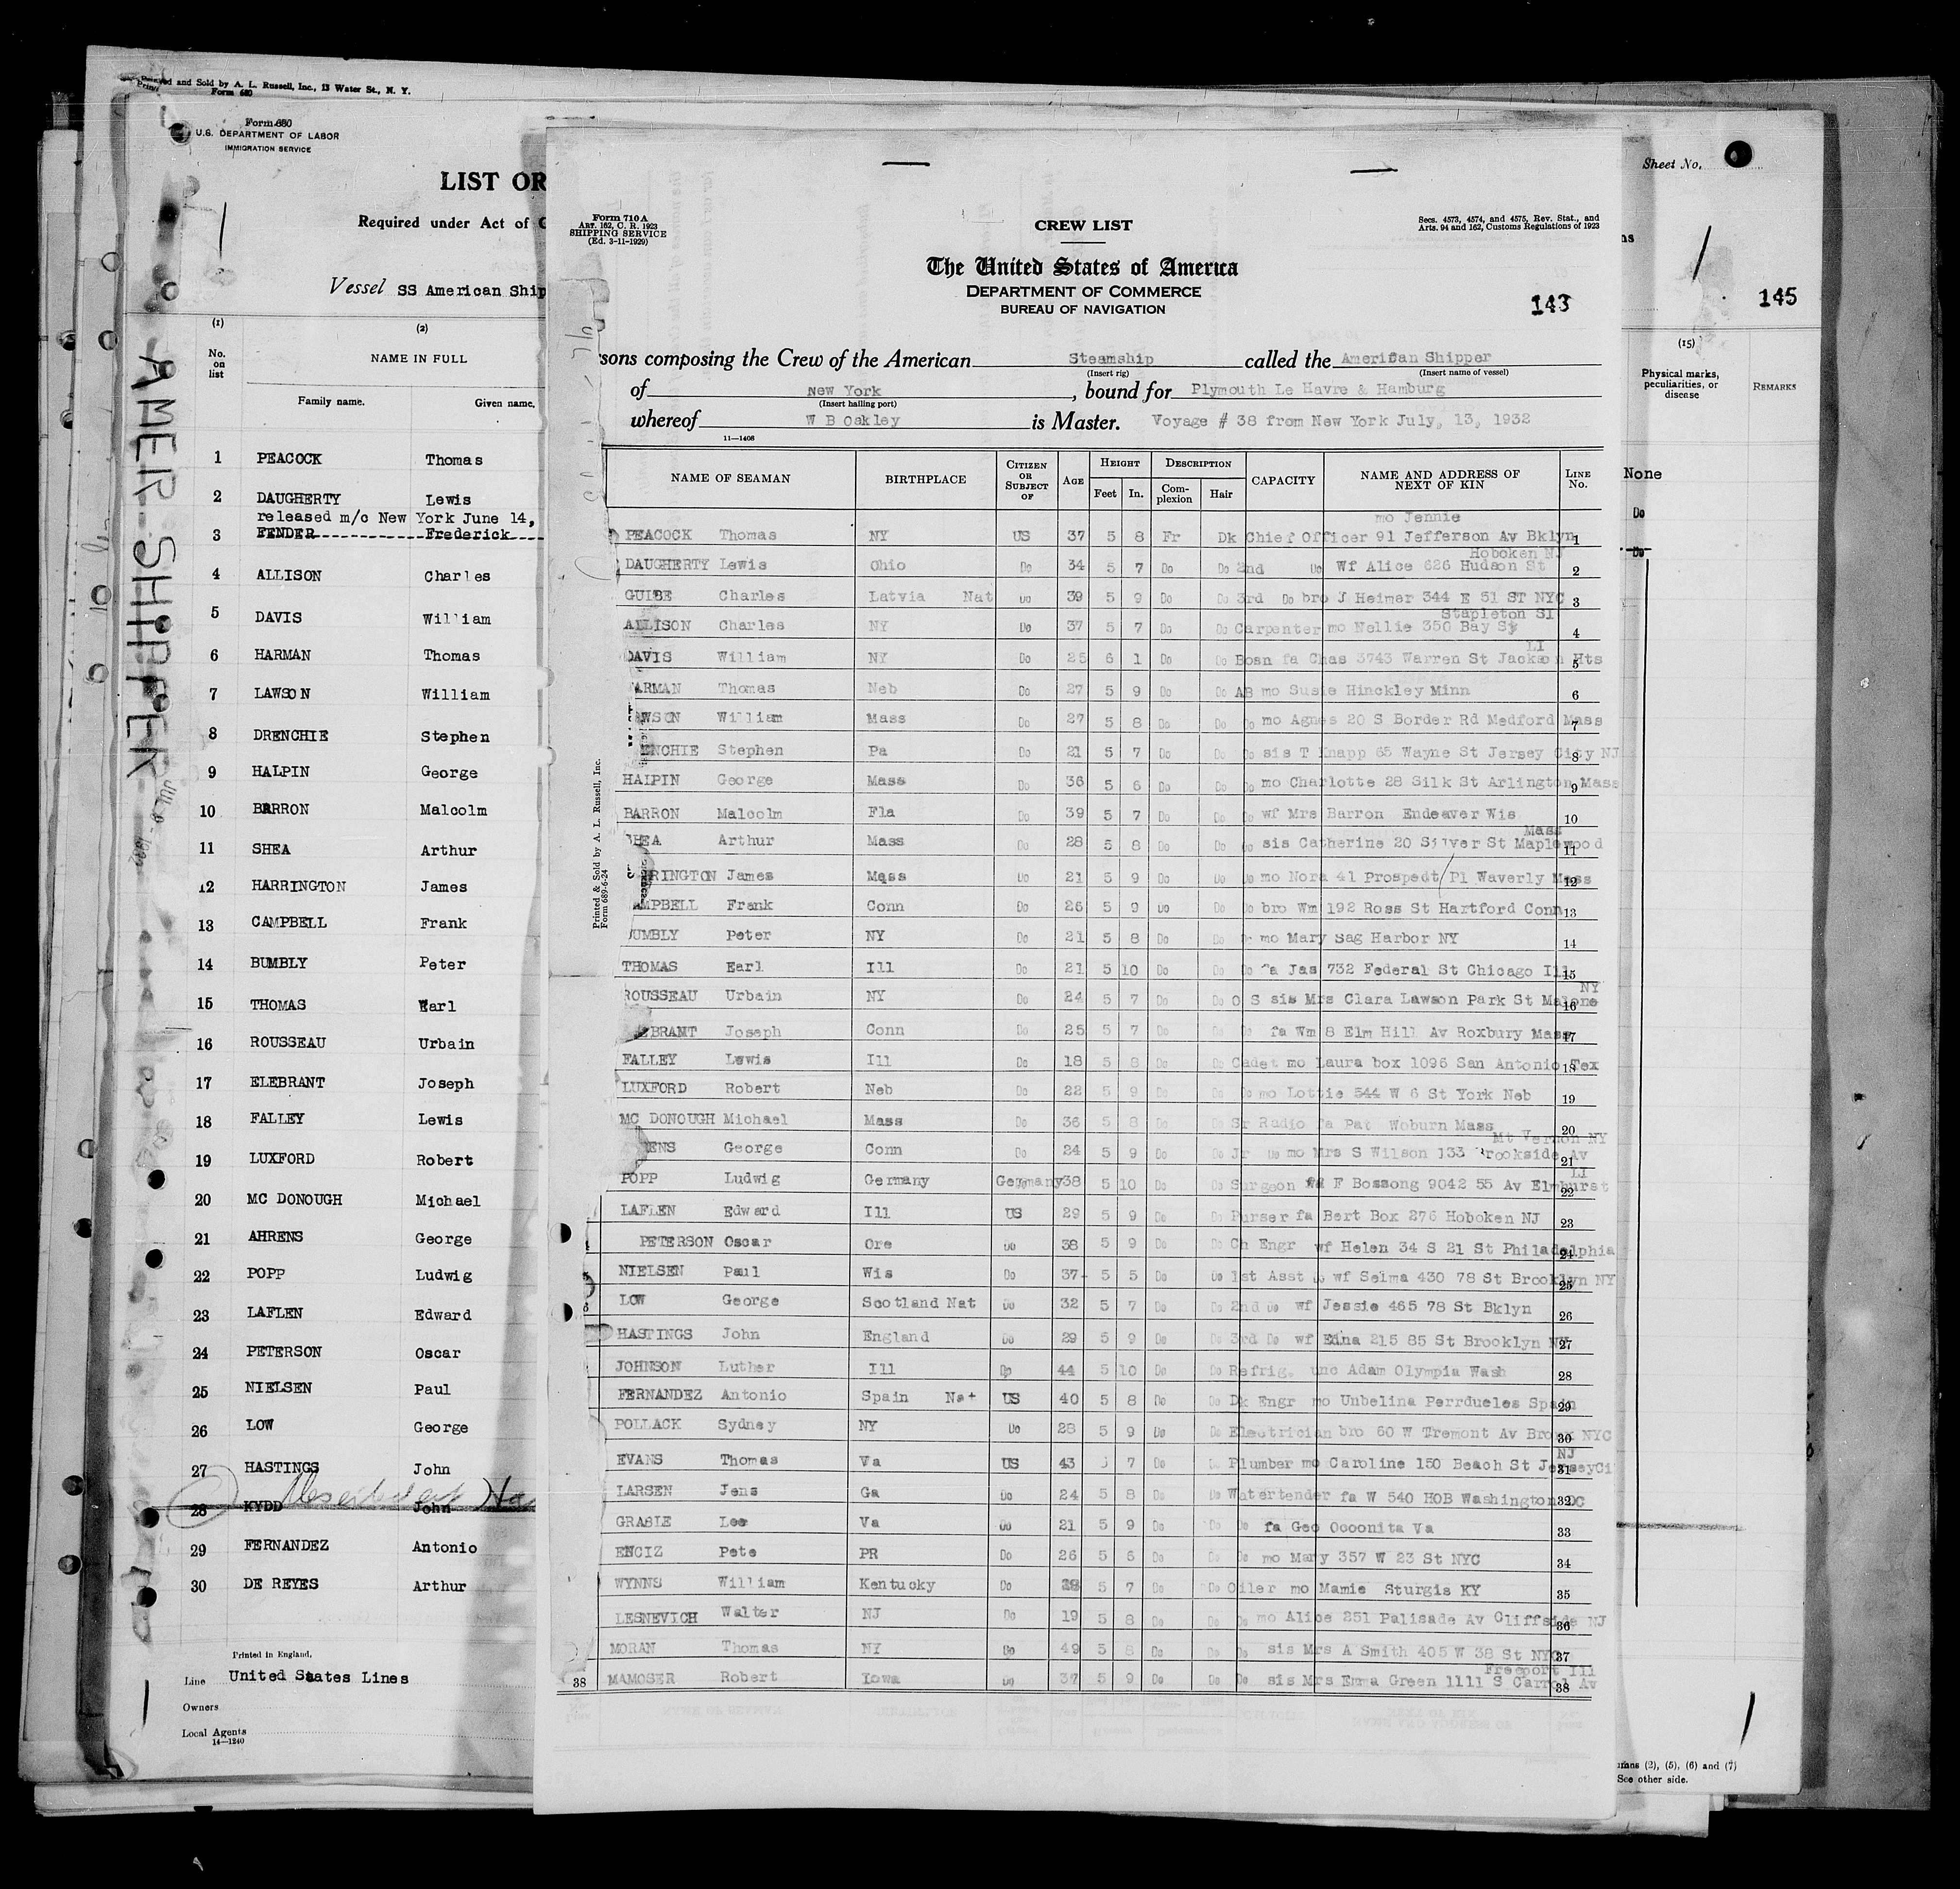 Printed and Sold by A. L. Russell, Inc., 13 Water St., N. Y.
Form 680
Form 680
U.S. DEPARTMENT OF LABOR
IMMIGRATION SERVICE
LIST OR
Required under Act of
Vessel SS American Ship
(1) (2)
No. on list
NAME IN FULL
Family name. Given name.
1 PEACOCK Thomas
2 DAUGHERTY Lewis
released m/c New York June 14,
3 FENDER Frederick
4 ALLISON Charles
5 DAVIS William
6 HARMAN Thomas
7 LAWSON William
8 DRENCHIE Stephen
9 HALPIN George
10 BARRON Malcolm
11 SHEA Arthur
12 HARRINGTON James
13 CAMPBELL Frank
14 BUMBLY Peter
15 THOMAS Earl
16 ROUSSEAU Urbain
17 ELEBRANT Joseph
18 FALLEY Lewis
19 LUXFORD Robert
20 MC DONOUGH Michael
21 AHRENS George
22 POPP Ludwig
23 LAFLEN Edward
24 PETERSON Oscar
25 NIELSEN Paul
26 LOW George
27 HASTINGS John
28 KYDD John
29 FERNANDEZ Antonio
30 DE REYES Arthur
Printed in England.
Line United States Lines
Owners
Local Agents
14—1240
AMER. SHIPPER
Form 710 A
ART. 162, C. R. 1923
SHIPPING SERVICE
(Ed. 3-11-1929)
CREW LIST
Secs. 4573, 4574, and 4575, Rev. Stat., and
Arts. 94 and 162, Customs Regulations of 1923
The United States of America
DEPARTMENT OF COMMERCE
BUREAU OF NAVIGATION
143
sons composing the Crew of the American Steamship called the American Shipper
(Insert rig) (Insert name of vessel)
of New York, bound for Plymouth Le Havre & Hamburg
(Insert hailing port)
whereof W B Oakley is Master. Voyage # 38 from New York July, 13, 1932
11—1408
NAME OF SEAMAN BIRTHPLACE CITIZEN OR SUBJECT OF AGE HEIGHT Feet In. DESCRIPTION Complexion Hair CAPACITY NAME AND ADDRESS OF NEXT OF KIN LINE No.
mo Jennie
PEACOCK Thomas NY US 37 5 8 Fr Dk Chief Officer 91 Jefferson Av Bklyn 1
Hoboken NJ
DAUGHERTY Lewis Ohio Do 34 5 7 Do Do 2nd Do Wf Alice 626 Hudson St 2
GUIBE Charles Latvia Nat Do 39 5 9 Do Do 3rd Do bro J Heimer 344 E 51 ST NYC 3
Stapleton SI
ALLISON Charles NY Do 37 5 7 Do Do Carpenter mo Nellie 350 Bay St 4
LI
DAVIS William NY Do 25 6 1 Do Do Bosn fa Chas 3743 Warren St Jackson Hts 5
ARMAN Thomas Neb Do 27 5 9 Do Do AB mo Susie Hinckley Minn 6
WSON William Mass Do 27 5 8 Do Do Do mo Agnes 20 S Border Rd Medford Mass 7
ENCHIE Stephen Pa Do 21 5 7 Do Do Do sis T Knapp 65 Wayne St Jersey City NJ 8
HALPIN George Mass Do 36 5 6 Do Do Do mo Charlotte 28 Silk St Arlington Mass 9
BARRON Malcolm Fla Do 39 5 7 Do Do Do wf Mrs Barron Endeaver Wis 10
Mass
SHEA Arthur Mass Do 28 5 8 Do Do Do sis Catherine 20 Silver St Maplewood 11
RRINGTON James Mass Do 21 5 9 Do Do Do mo Nora 41 Prospect Pl Waverly Mass 12
AMPBELL Frank Conn Do 26 5 9 Do Do Do bro Wm 192 Ross St Hartford Conn 13
UMBLY Peter NY Do 21 5 8 Do Do Do mo Mary Sag Harbor NY 14
THOMAS Earl Ill Do 21 5 10 Do Do Do fa Jas 732 Federal St Chicago Ill 15
NY
ROUSSEAU Urbain NY Do 24 5 7 Do Do O S sis Mrs Clara Lawson Park St Malone 16
EBRANT Joseph Conn Do 25 5 7 Do Do Do fa Wm 8 Elm Hill Av Roxbury Mass 17
FALLEY Lewis Ill Do 18 5 8 Do Do Cadet mo Laura box 1096 San Antonio Tex 18
LUXFORD Robert Neb Do 22 5 9 Do Do Do mo Lottie 544 W 6 St York Neb 19
MC DONOUGH Michael Mass Do 36 5 8 Do Do Sr Radio fa Pat Woburn Mass 20
Mt Vernon NY
ENS George Conn Do 24 5 9 Do Do Jr Do mo Mrs S Wilson 133 Brookside Av 21
LI
POPP Ludwig Germany Germany 38 5 10 Do Do Surgeon F Bossong 9042 55 Av Elmhurst 22
LAFLEN Edward Ill US 29 5 9 Do Do Purser fa Bert Box 276 Hoboken NJ 23
PETERSON Oscar Ore Do 38 5 9 Do Do Ch Engr wf Helen 34 S 21 St Philadelphia 24
NIELSEN Paul Wis Do 37 5 5 Do Do 1st Asst Do wf Selma 430 78 St Brooklyn NY 25
LOW George Scotland Nat Do 32 5 7 Do Do 2nd Do wf Jessie 465 78 St Bklyn 26
HASTINGS John England Do 29 5 9 Do Do 3rd Do wf Edna 215 85 St Brooklyn NY 27
JOHNSON Luther Ill Do 44 5 10 Do Do Refrig. unc Adam Olympia Wash 28
FERNANDEZ Antonio Spain Nat US 40 5 8 Do Do Dk Engr mo Unbelina Perrdueles Spain 29
POLLACK Sydney NY Do 28 5 9 Do Do Electrician bro 60 W Tremont Av Bronx NYC 30
NJ
EVANS Thomas Va US 43 7 Do Do Plumber mo Caroline 150 Beach St JerseyCi 31
LARSEN Jens Ga Do 24 5 8 Do Do Watertender fa W 540 HOB Washington DC 32
GRASIE Lee Va Do 21 5 9 Do Do Do fa Geo Ocoonita Va 33
ENCIZ Pete PR Do 26 5 6 Do Do Do mo Mary 357 W 23 St NYC 34
WYNNS William Kentucky Do 5 7 Do Do Oiler mo Mamie Sturgis KY 35
LESNEVICH Walter NJ Do 19 5 8 Do Do Do mo Alice 251 Palisade Av Cliffside NJ 36
MORAN Thomas NY Do 49 5 8 Do Do Do sis Mrs A Smith 405 W 38 St NYC 37
Freeport Ill
38 MAMOSER Robert Iowa Do 37 5 9 Do Do Do sis Mrs Emma Green 1111 S Carrol Av 38
Printed & Sold by A. L. Russell, Inc.
Form 689-6-24
Sheet No.
ns
145
(15)
Physical marks, peculiarities, or disease
REMARKS
None
Do
Do
umns (2), (5), (6) and (7)
See other side.